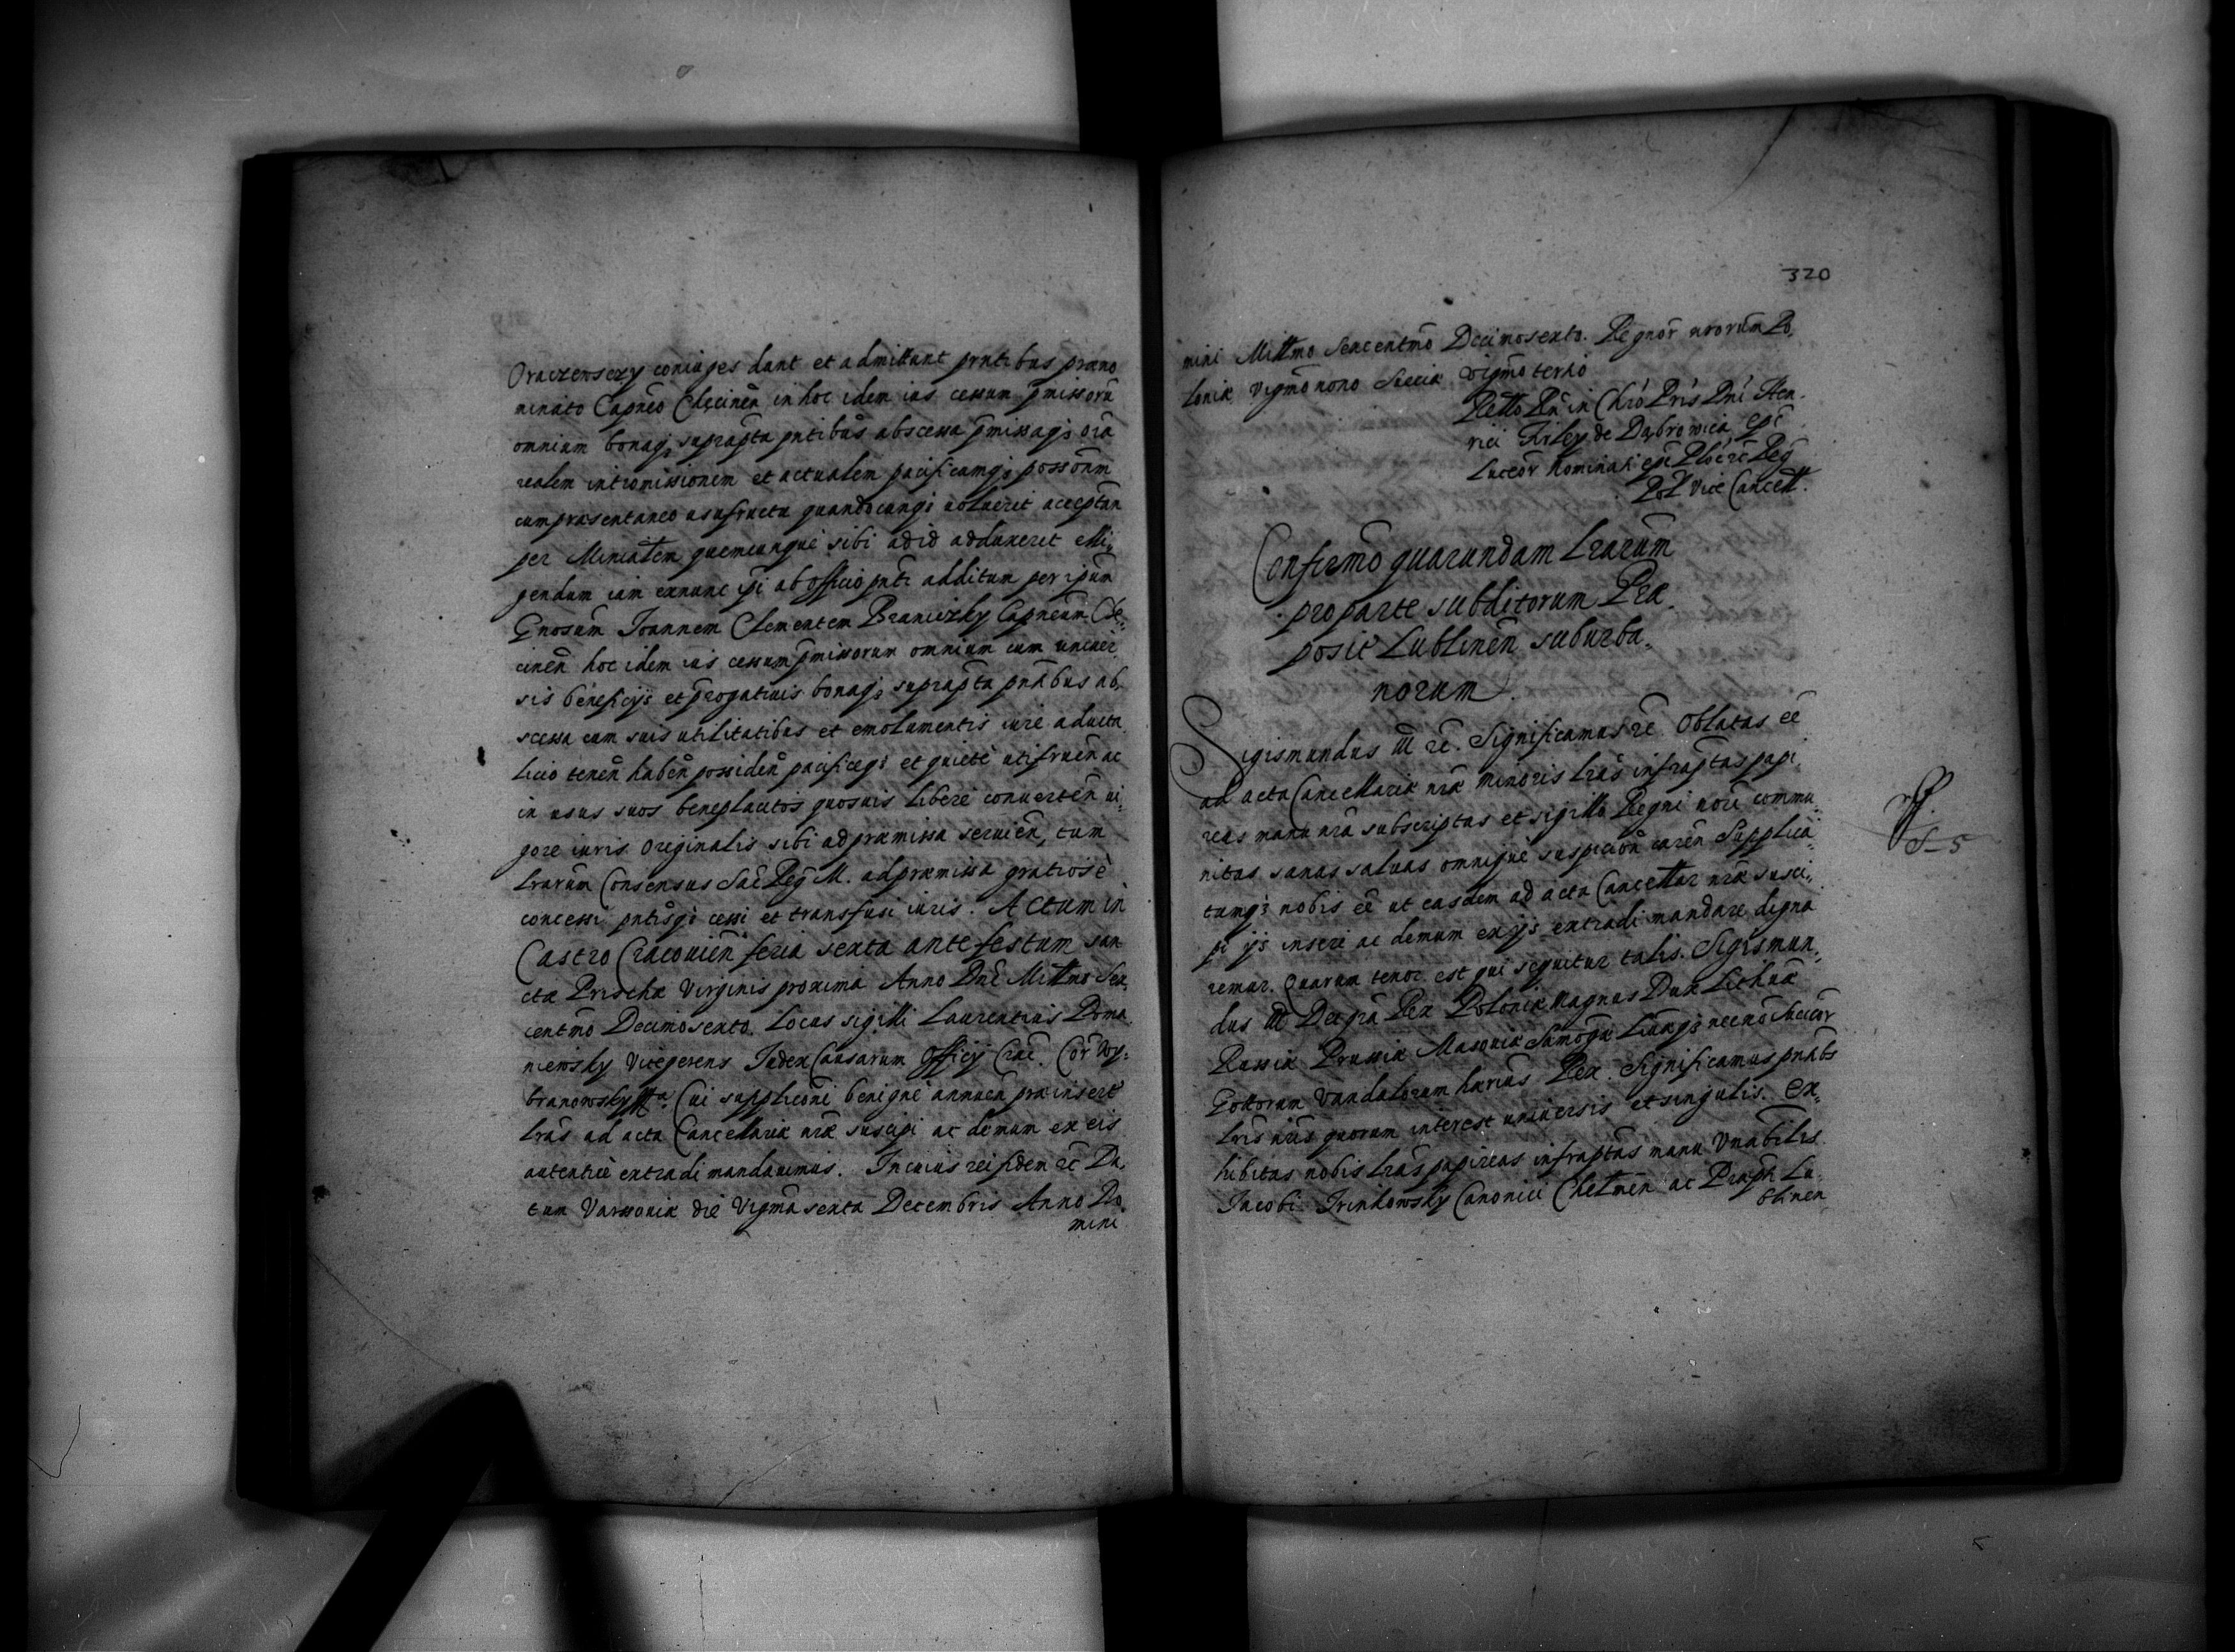 Oraczewsczy coniuges dant et admittunt prntibus præno
minato Capneo Chęcinen̄ in hoc idem ius cessum p̄missorū
omnium bonaq₃ suprapta pntibus abscessa p̄missaq₃ oīa
realem intromissionem et actualem pacificamq₃ possōnm
cum præsentaneo usufructu quandocunq₃ voluerit acceptan̄
per Mīniālem quemcunque sibi ad id adduxerit elli,
gendum iam exnunc ipi ab officio pnti additum per ipūm
Gnosum Ioannem Clementem Braniczky Capneum Chę,
cinen̄ hoc idem ius cessum p̄missorum omnium cum univer
sis beneficijs et p̄rogativis bonaq₃ suprapta pntibus ab,
scessa cum suis utilitatibus et emolumentis iure advita
licio tenen̄ haben̄ possiden̄ pacificeq₃ et quietè utifruen̄ ac
in usus suos beneplacitos quosvis liberè converten̄ vi,
gore iuris originalis sibi ad præmissa servien̄, tum
lrarum Consensus Sac̄ Reḡ M. ad præmissa gratiosè
concessi pntisq₃ cessi et transfusi iuris. Actum in
Castro Cracovien̄ feria sexta ante festum san
ctæ Priscæ Virginis proxima Anno Dnī Millmo Sex,
centmo Decimosexto. Locus sigilli Laurentius Roma,
niewsky Vicegerens Iudex Causarum Officij Crac̄. Cor̄ Wy,
branowsky Cui supplicōni benignè annuen̄ præinsert
lrās ad acta Cancellariæ nræ suscipi ac demum ex eis
autenticè extradi mandavimus. In cuius rei fidem rc̄ Da,
tum Varsoviæ die Vigmā sexta Decembris Anno Do,
mini
320
mini Millmo Sexcentmo Decimosexto. Regnor̄ nrorum Po,
loniæ vigmo nono Sueciæ vigmo tertio
Rello Rn̄ in Chrō Pris Dni Hen,
rici Firley de Dąbrowica Epi
Luceor̄ Nominati epi Plocē Reḡ
Pol Vice Cancell.
Confirmō quarundam Lrarum
pro parte subditorum Præ,
posit̄ Lublinen̄ suburba,
norum.
Sigismundus III rc̄. Significamus rc̄. Oblatas eē
ad acta Cancellariæ nræ minoris lrās infraptas papi,
reas manu nrā subscriptas et sigillo Regni nrī commu
nitas sanas salvas omnique suspicion̄ caren̄ Supplica,
tumq₃ nobis eē ut easdem ad acta Cancellar̄ nræ susci,
pi ijs inseri ac demum ex ijs extradi mandare digna
remur. Quarum tenor est qui sequitur talis. Sigismun,
dus III Dei gra Rex Poloniæ Magnus Dux Lithuæ
Russiæ Prussiæ Masoviæ Samogæ Liuæq₃ necnō Suecor̄
Gottorum Vandalorum hærius Rex. Significamus pntibs
lris nris quorum interest universis et singulis. Ex,
hibitas nobis lrās papireas infraptas manu Vnabilis
Iacobi Trinkowsky Canonici Chelmen̄ ac Præpti Lu,
blinen
S-5